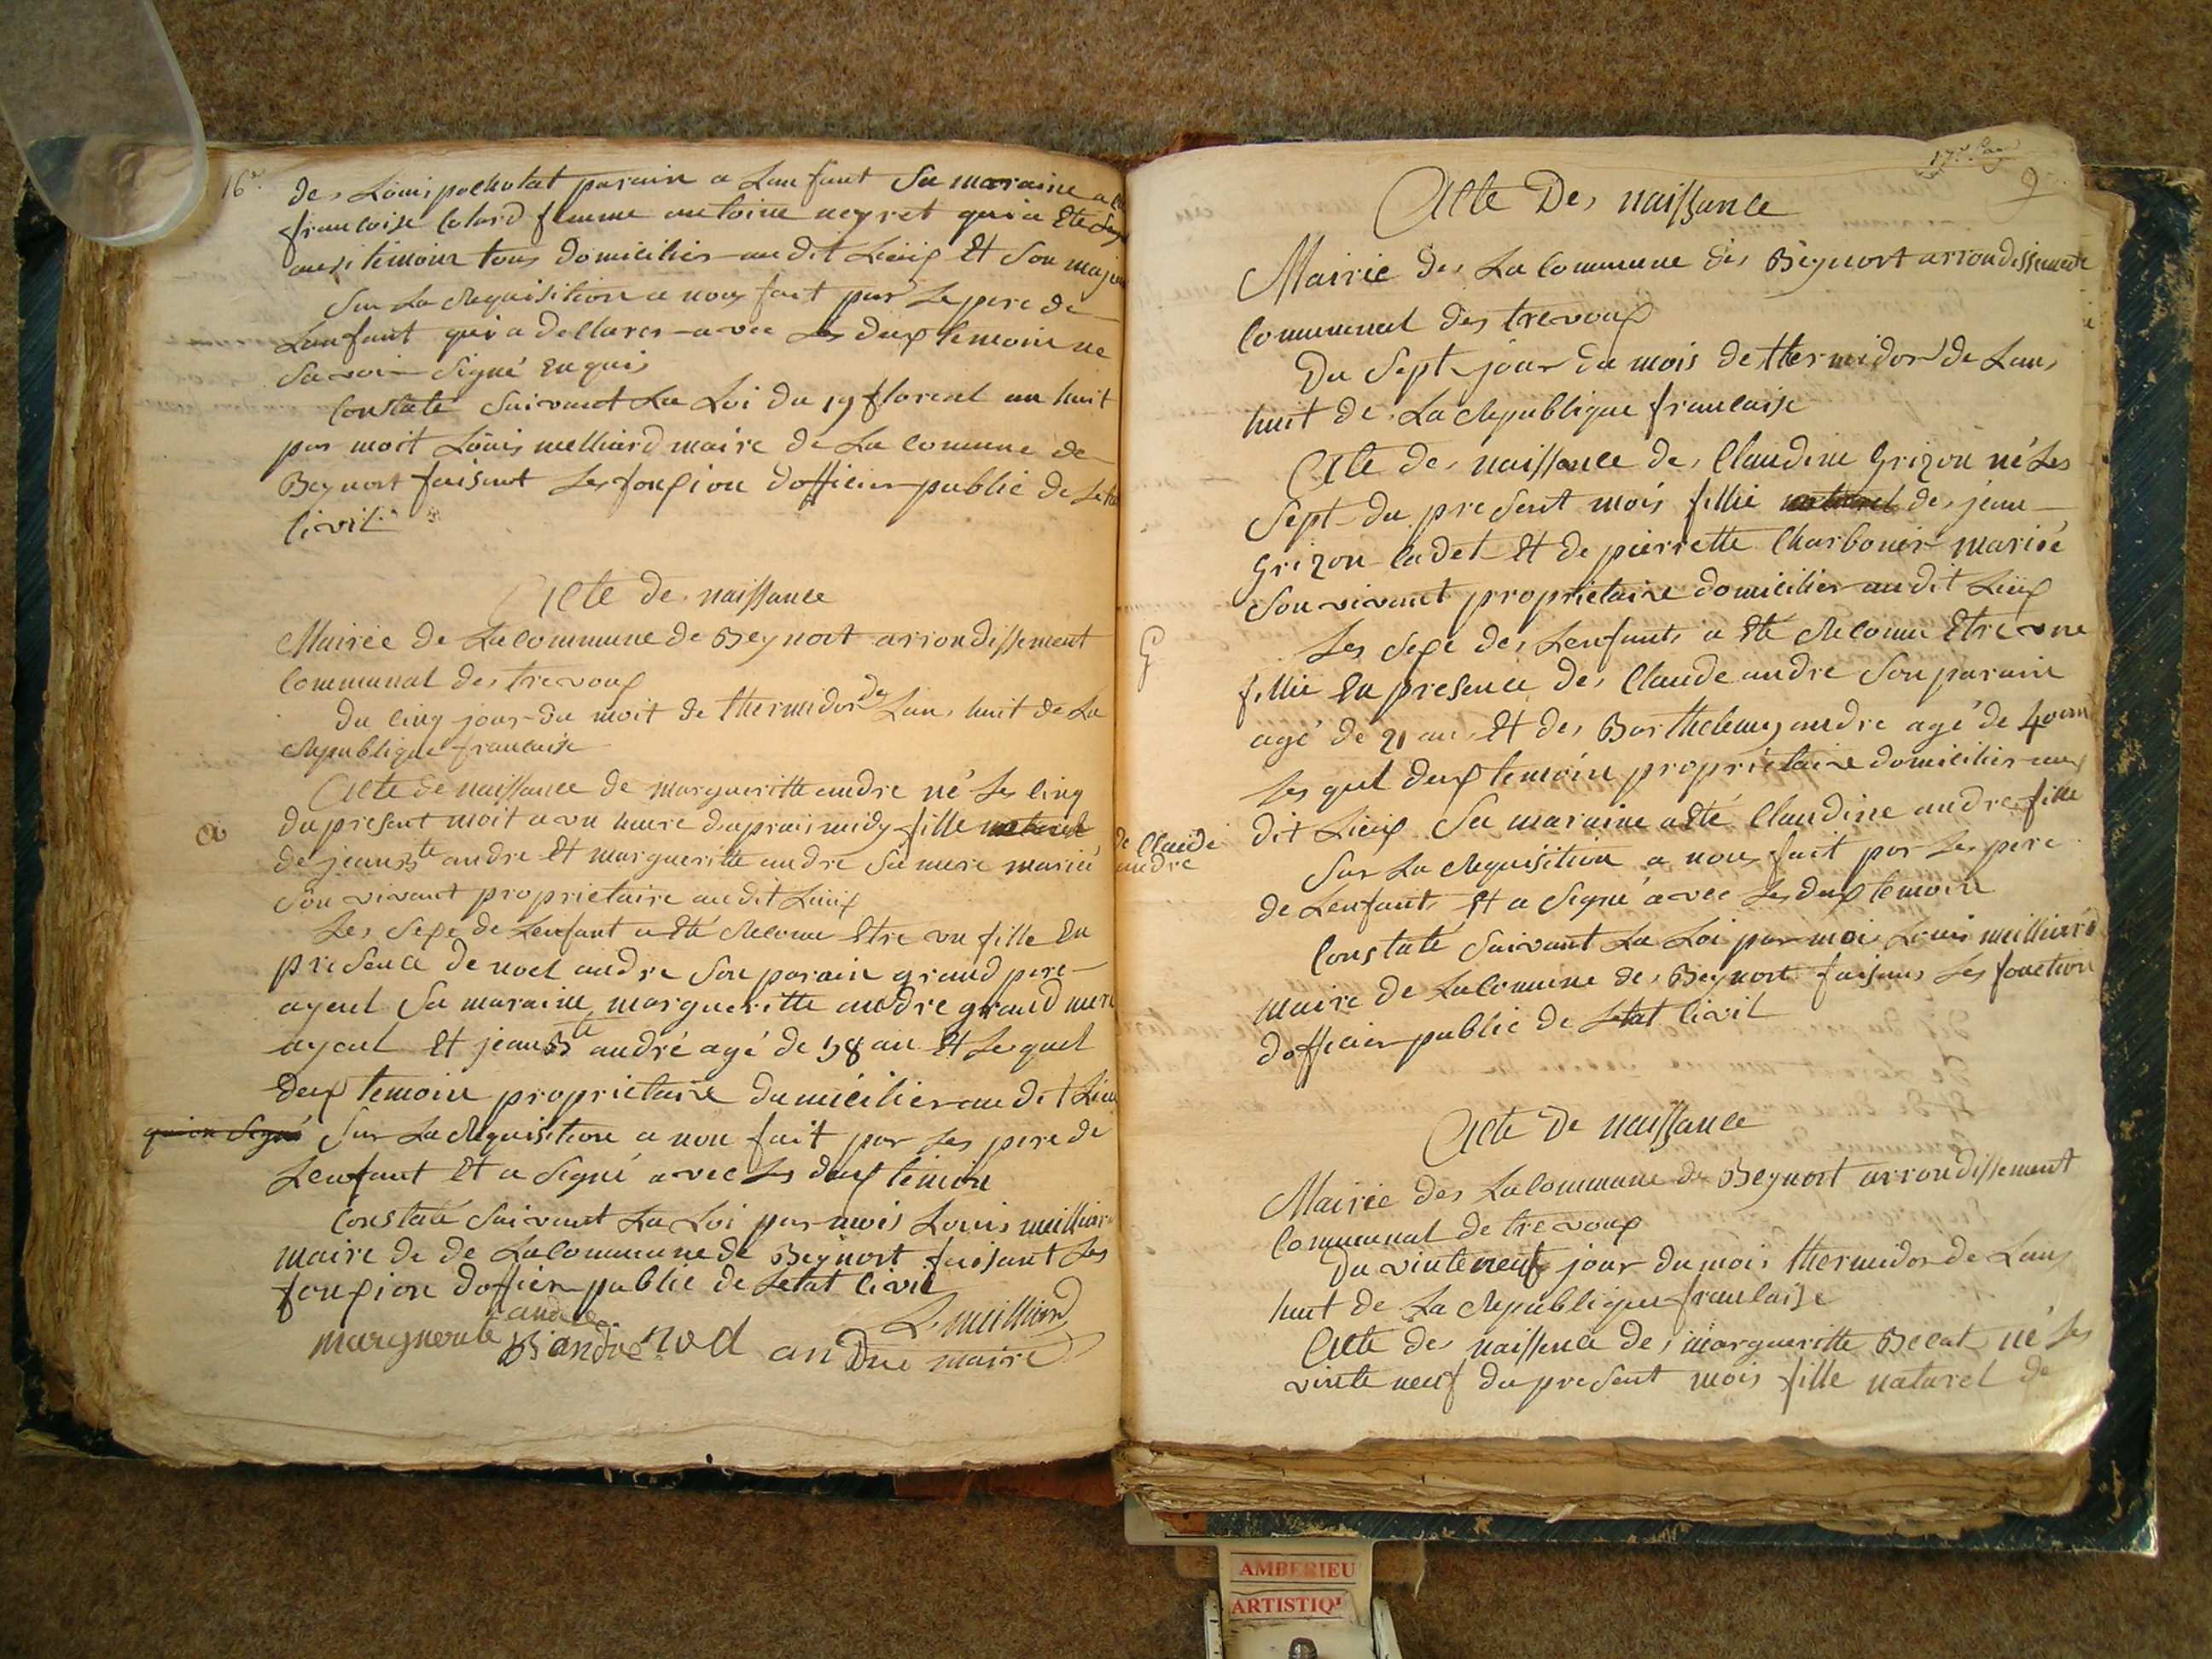 16e
de Louis pochotat parain a Lanfant Sa maraine a
francoise Colard femme antoine neyret qui a Eté
ausi temoin tous domicilier au dit Lieux Et Son majeur
Sur La Requisition a nous fait par Le pere de
Lanfant qui a dellarer avec Les deux temoin ne
Savoir Signé Enquis
Constaté Suivant La Loi du 19 floreal an huit
par moit Louis melliard maire de La Comune de
Beynort faisant Les fonxion dofficier public de Letat
Civil
Acte de naissance
Mairiee de La Commune de Beynort arrondissement
Communal des trevoux
Du Cinq jour du moit de thermidor de Lan huit de La
Republique francaise
Acte de naissance de margueritte andre né Les Cinq
du present moit a vn heure dupraimidy fille naturel
a
de jean Bte andre Et margueritte andre Sa mere marié
Son vivant proprietaire au dit Lieux
Les Sexe de Lenfant a Eté Reconu Etre vn fille En
presence de noel andre Son parain grand pere
ayeul Sa maraine margueritte andre grand mere
ayeul Et jean Bte andré agé de 58 an Et Lequel
deux temoin proprietaire dumicilier au dit Lieu
qui on Signé Sur La Requisition a nou fait par Les pere de
Lenfant Et a Signé avec Les deux temoin
Constaté Suivant La Loi par mois Louis meilliard
maire de de La Commune de Beynort faisant Les
fonxion dofficier public de Letat Civil
L. meilliard
marguerite andre B andre noel andre maire
17e Page
9
Acte De naissance
Mairie des La Commune des Beynort arrondissement
Communal des trevoux
Du Sept jour du mois de thermidor de Lan
huit de La Republique francaise
Acte de naissance de Claudine Grizon né Les
Sept du present mois fillie naturel de jean
Grizon Cadet Et de pierrette Charbonier marié
Son vivant proprietaire domicilier au dit Lieux
G
Les Sexe des Lenfant a Eté Reconu Etre vne
fillie En presence de Claude andre Son parain
agé de 21 an Et de Barthelemy andre agé de 40 an
Les quel deux temoin proprietaire domicilier au
dit Lieux Sa maraine a Eté Claudine andre fille
de Claude
andre
Sur La Requisition a nous fait par Les pere
de Lenfant Et a Signé avec Les deux temoin
Constaté Suivant La Loi par moi Louis meilliard
maire de La Comune de Beynort faisans Les fonction
dofficier public de Letat Civil
Acte De naissance
Mairie des La Commune de Beynort arrondissement
Communal de trevoux
Du vinteneuf jour du mois thermidor de Lan
huit de La Republique francaise
Acte de naissence de margueritte Becat né Les
vinte neuf du present mois fille naturel de
AMBERIEU
ARTISTIQ